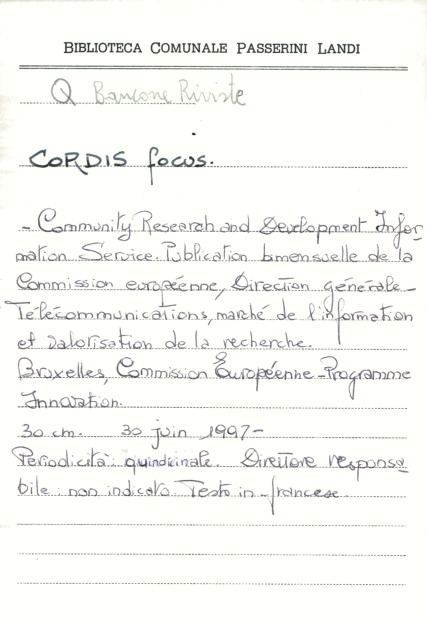 BIBLIOTECA COMUNALE PASSERINI LANDI
Q Bancone Riviste
CORDIS focus.
- Community Research and Development Infor
mation Service. Publication bimensuelle de la
Commission européenne, Direction générale -
Télécommunications, marché de l'information
et valorisation de la recherche.
Bruxelles, Commission Européenne - Programme
Innovation.
30 cm. 30 juin 1997-
Periodicità: quindicinale. Direttore responsa
bile: non indicato. Testo in francese.